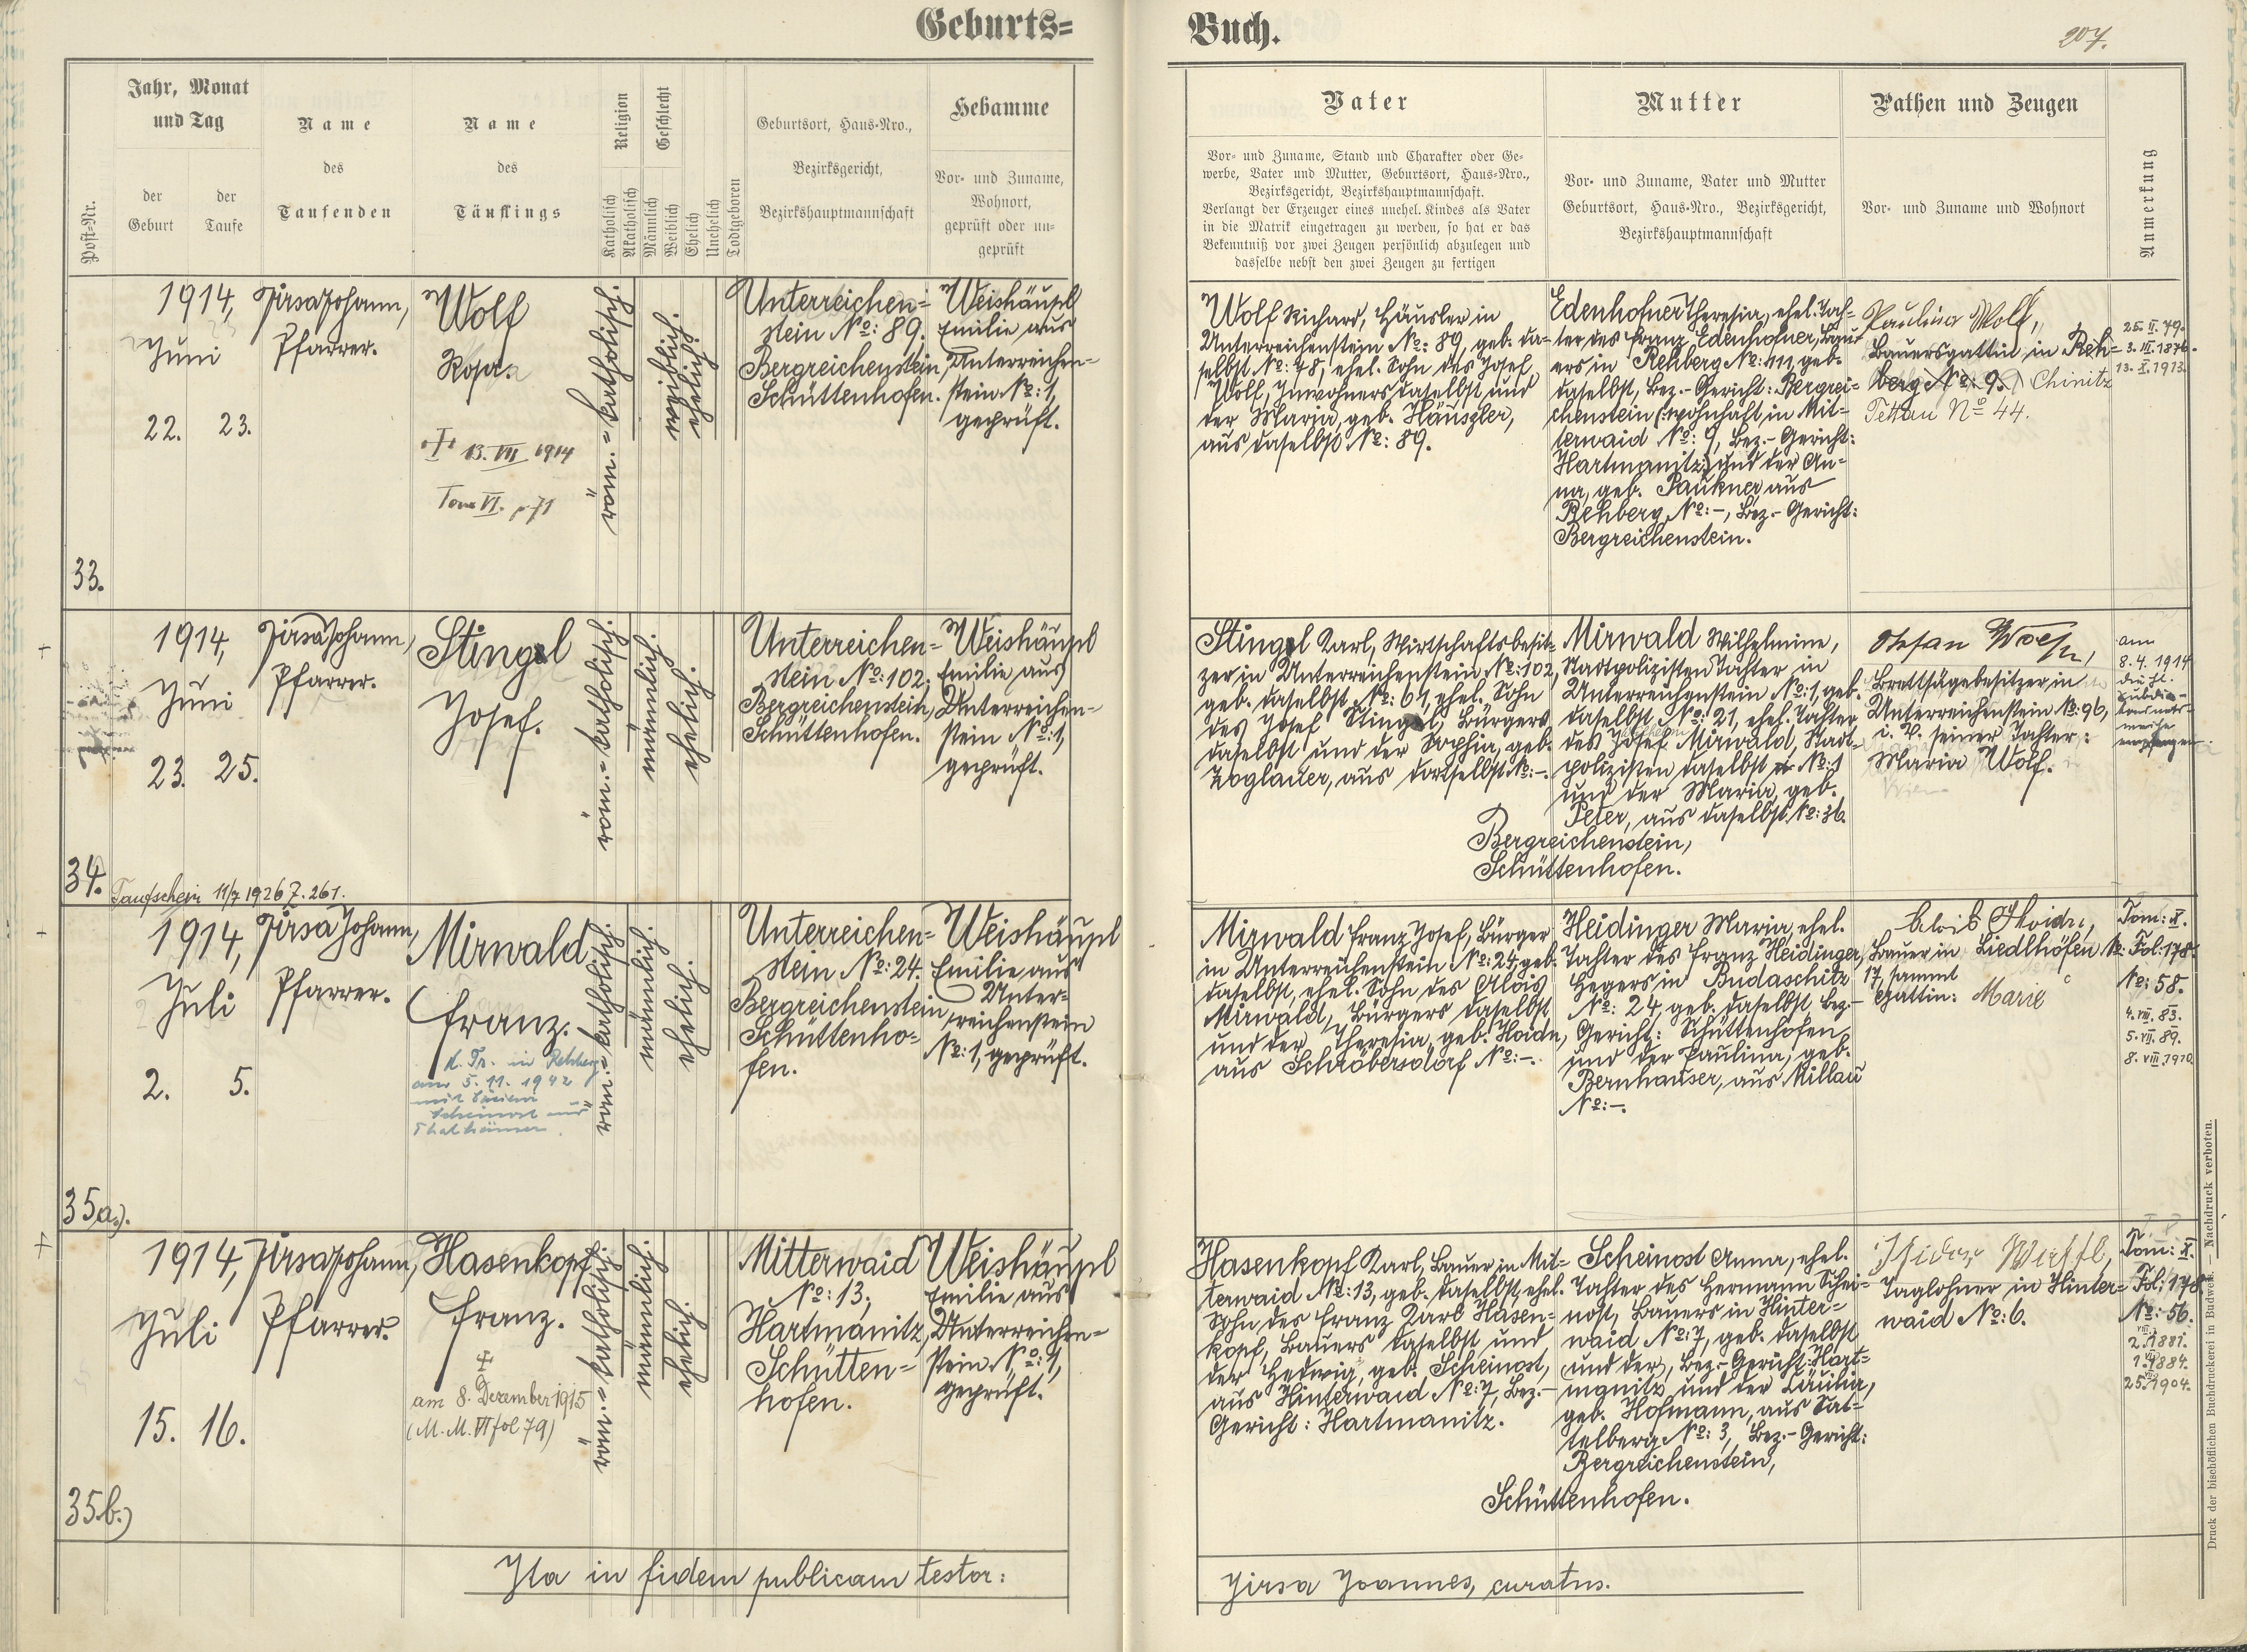 Geburts=
Buch.
207.
Post-Nr.
Jahr, Monat
und Tag
der
Geburt
der
Taufe
Name
des
Taufenden
Name
des
Täuflings
Religion
Katholisch
Akatholisch
Geschlecht
Männlich
Weiblich
Ehelich
Unehelich
Todtgeboren
Geburtsort, Haus-Nro.,
Bezirksgericht,
Bezirkshauptmannschaft
Hebamme
Vor- und Zuname,
Wohnort,
geprüft oder un-
geprüft
Vater
Vor- und Zuname, Stand und Charakter oder Ge-
werbe, Vater und Mutter, Geburtsort, Haus-Nro.,
Bezirksgericht, Bezirkshauptmannschaft.
Verlangt der Erzeuger eines unehel. Kindes als Vater
in die Matrik eingetragen zu werden, so hat er das
Bekenntniß vor zwei Zeugen persönlich abzulegen und
dasselbe nebst den zwei Zeugen zu fertigen
Mutter
Vor- und Zuname, Vater und Mutter
Geburtsort, Haus-Nro., Bezirksgericht,
Bezirkshauptmannschaft
Pathen und Zeugen
Vor- und Zuname und Wohnort
Anmerkung
33.
1914,
Juni
22. 23.
Jirsa Johann,
Pfarrer.
Wolf
Rosa.
13. VII 1914
Tom VI. p 71
röm.=katholisch.
weiblich.
ehelich.
Unterreichen=
stein No: 89.
Bergreichenstein,
Schüttenhofen.
Weishäupl
Emilie aus
Unterreichen=
stein No: 1,
geprüft.
Wolf Richard, Häusler in
Unterreichenstein No: 89, geb. da-
selbst No: 78, ehel. Sohn des Josef
Wolf, Inwohners daselbst und
der Maria, geb. Häuszler,
aus daselbst No: 89.
Edenhofner Theresia, ehel. Toch-
ter des Franz Edenhofner, Bau-
ers in Rehberg No: 111, geb.
daselbst, Bez.-Gericht: Bergrei-
chenstein (:wohnhaft in Mit-
terwaid No: 9, Bez.-Gericht:
Hartmanitz:) und der An-
na, geb. Paukner, aus
Rehberg No: -, Bez.-Gericht:
Bergreichenstein.
Paulina Wolf,
Bauersgattin in Reh=
berg No: 9. Chinitz
Tettau No 44.
25. II. 79.
3. III. 1876.
13. X. 1913.
34.
1914,
Juni
23. 25.
Jirsa Johann,
Pfarrer.
Stingel
Josef.
röm.=katholisch.
männlich.
ehelich.
Unterreichen=
stein No: 102.
Bergreichenstein,
Schüttenhofen.
Weishäupl
Emilie aus
Unterreichen=
stein No: 1,
geprüft.
Stingel Karl, Wirtschaftsbesit-
zer in Unterreichenstein, No: 102,
geb. daselbst No: 61, ehel. Sohn
des Josef Stingel, Bürgers
daselbst und der Sophia, geb.
Zoglauer, aus dortselbst No: -.
Mirwald Wilhelmine,
Stadtpolizisten Tochter in
Unterreichenstein No: 1, geb.
daselbst No: 21, ehel. Tochter
des Josef Mirwald, Stadt-
polizisten daselbst No: 1
und der Maria, geb.
Peter, aus daselbst No: 36.
Bergreichenstein,
Schüttenhofen.
Stefan Wolf,
Brettsägebesitzer in
Unterreichenstein No: 96,
i. V. seiner Tochter:
Maria Wolf.
am
8. 4. 1914
Taufschein 11/7 1926 Z. 261.
35a.).
1914,
Juli
2. 5.
Jirsa Johann,
Pfarrer.
Mirwald
Franz.
k. Tr. in Rehberg
am 5. 11. 1942
röm.=katholisch.
männlich.
ehelich.
Unterreichen=
stein No: 24.
Bergreichenstein
Schüttenho=
fen.
Weishäupl
Emilie aus
Unter=
reichenstein
No: 1, geprüft.
Mirwald Franz Josef, Bürger
in Unterreichenstein No: 24, geb.
daselbst, ehel. Sohn des Alois
Mirwald, Bürgers daselbst
und der Theresia, geb. Haidn,
aus Schröbersdorf No: -.
Heidinger Maria, ehel.
Tochter des Franz Heidinger,
Hegers in Budaschitz
No: 24, geb. daselbst, Bez.-
Gericht: Schüttenhofen,
und der Paulina, geb.
Bernhauser, aus Millau
No: -.
Alois Haidn,
Bauer in Liedlhöfen No:
17, sammt
Gattin: Marie
Tom: X.
Fol: 178.
No: 58.
4. VIII. 83.
5. VII. 89.
8. VIII. 1910.
35b.)
1914,
Juli
15. 16.
Jirsa Johann,
Pfarrer.
Hasenkopf
Franz.
am 8. Dezember 1915
(M. M. VI fol 79)
röm.=katholisch.
männlich.
ehelich.
Mitterwaid
No: 13,
Hartmanitz,
Schütten=
hofen.
Weishäupl
Emilie aus
Unterreichen=
stein No: 1,
geprüft.
Hasenkopf Karl, Bauer in Mit-
terwaid No: 13, geb. daselbst, ehel.
Sohn des Franz Karl Hasen=
kopf, Bauers daselbst und
der Hedwig, geb. Scheinost,
aus Hinterwaid No: 7, Bez.-
Gericht: Hartmanitz.
Scheinost Anna, ehel.
Tochter des Hermann Schei=
nost, Bauers in Hinter=
waid No: 7, geb. daselbst
(und der), Bez.-Gericht: Hart=
manitz und der Cäcilia,
geb. Hofmann, aus Sat=
telberg No: 3, Bez.-Gericht:
Bergreichenstein,
Schüttenhofen.
Isidor
Taglöhner in Hinter=
waid No: 6.
Tom: X.
Fol: 178.
No: 56.
2. VIII. 1881.
1884.
1904.
Ita in fidem publicam testor:
Jirsa Joannes, curatus.
Druck der bischöflichen Buchdruckerei in Budweis. — Nachdruck verboten.